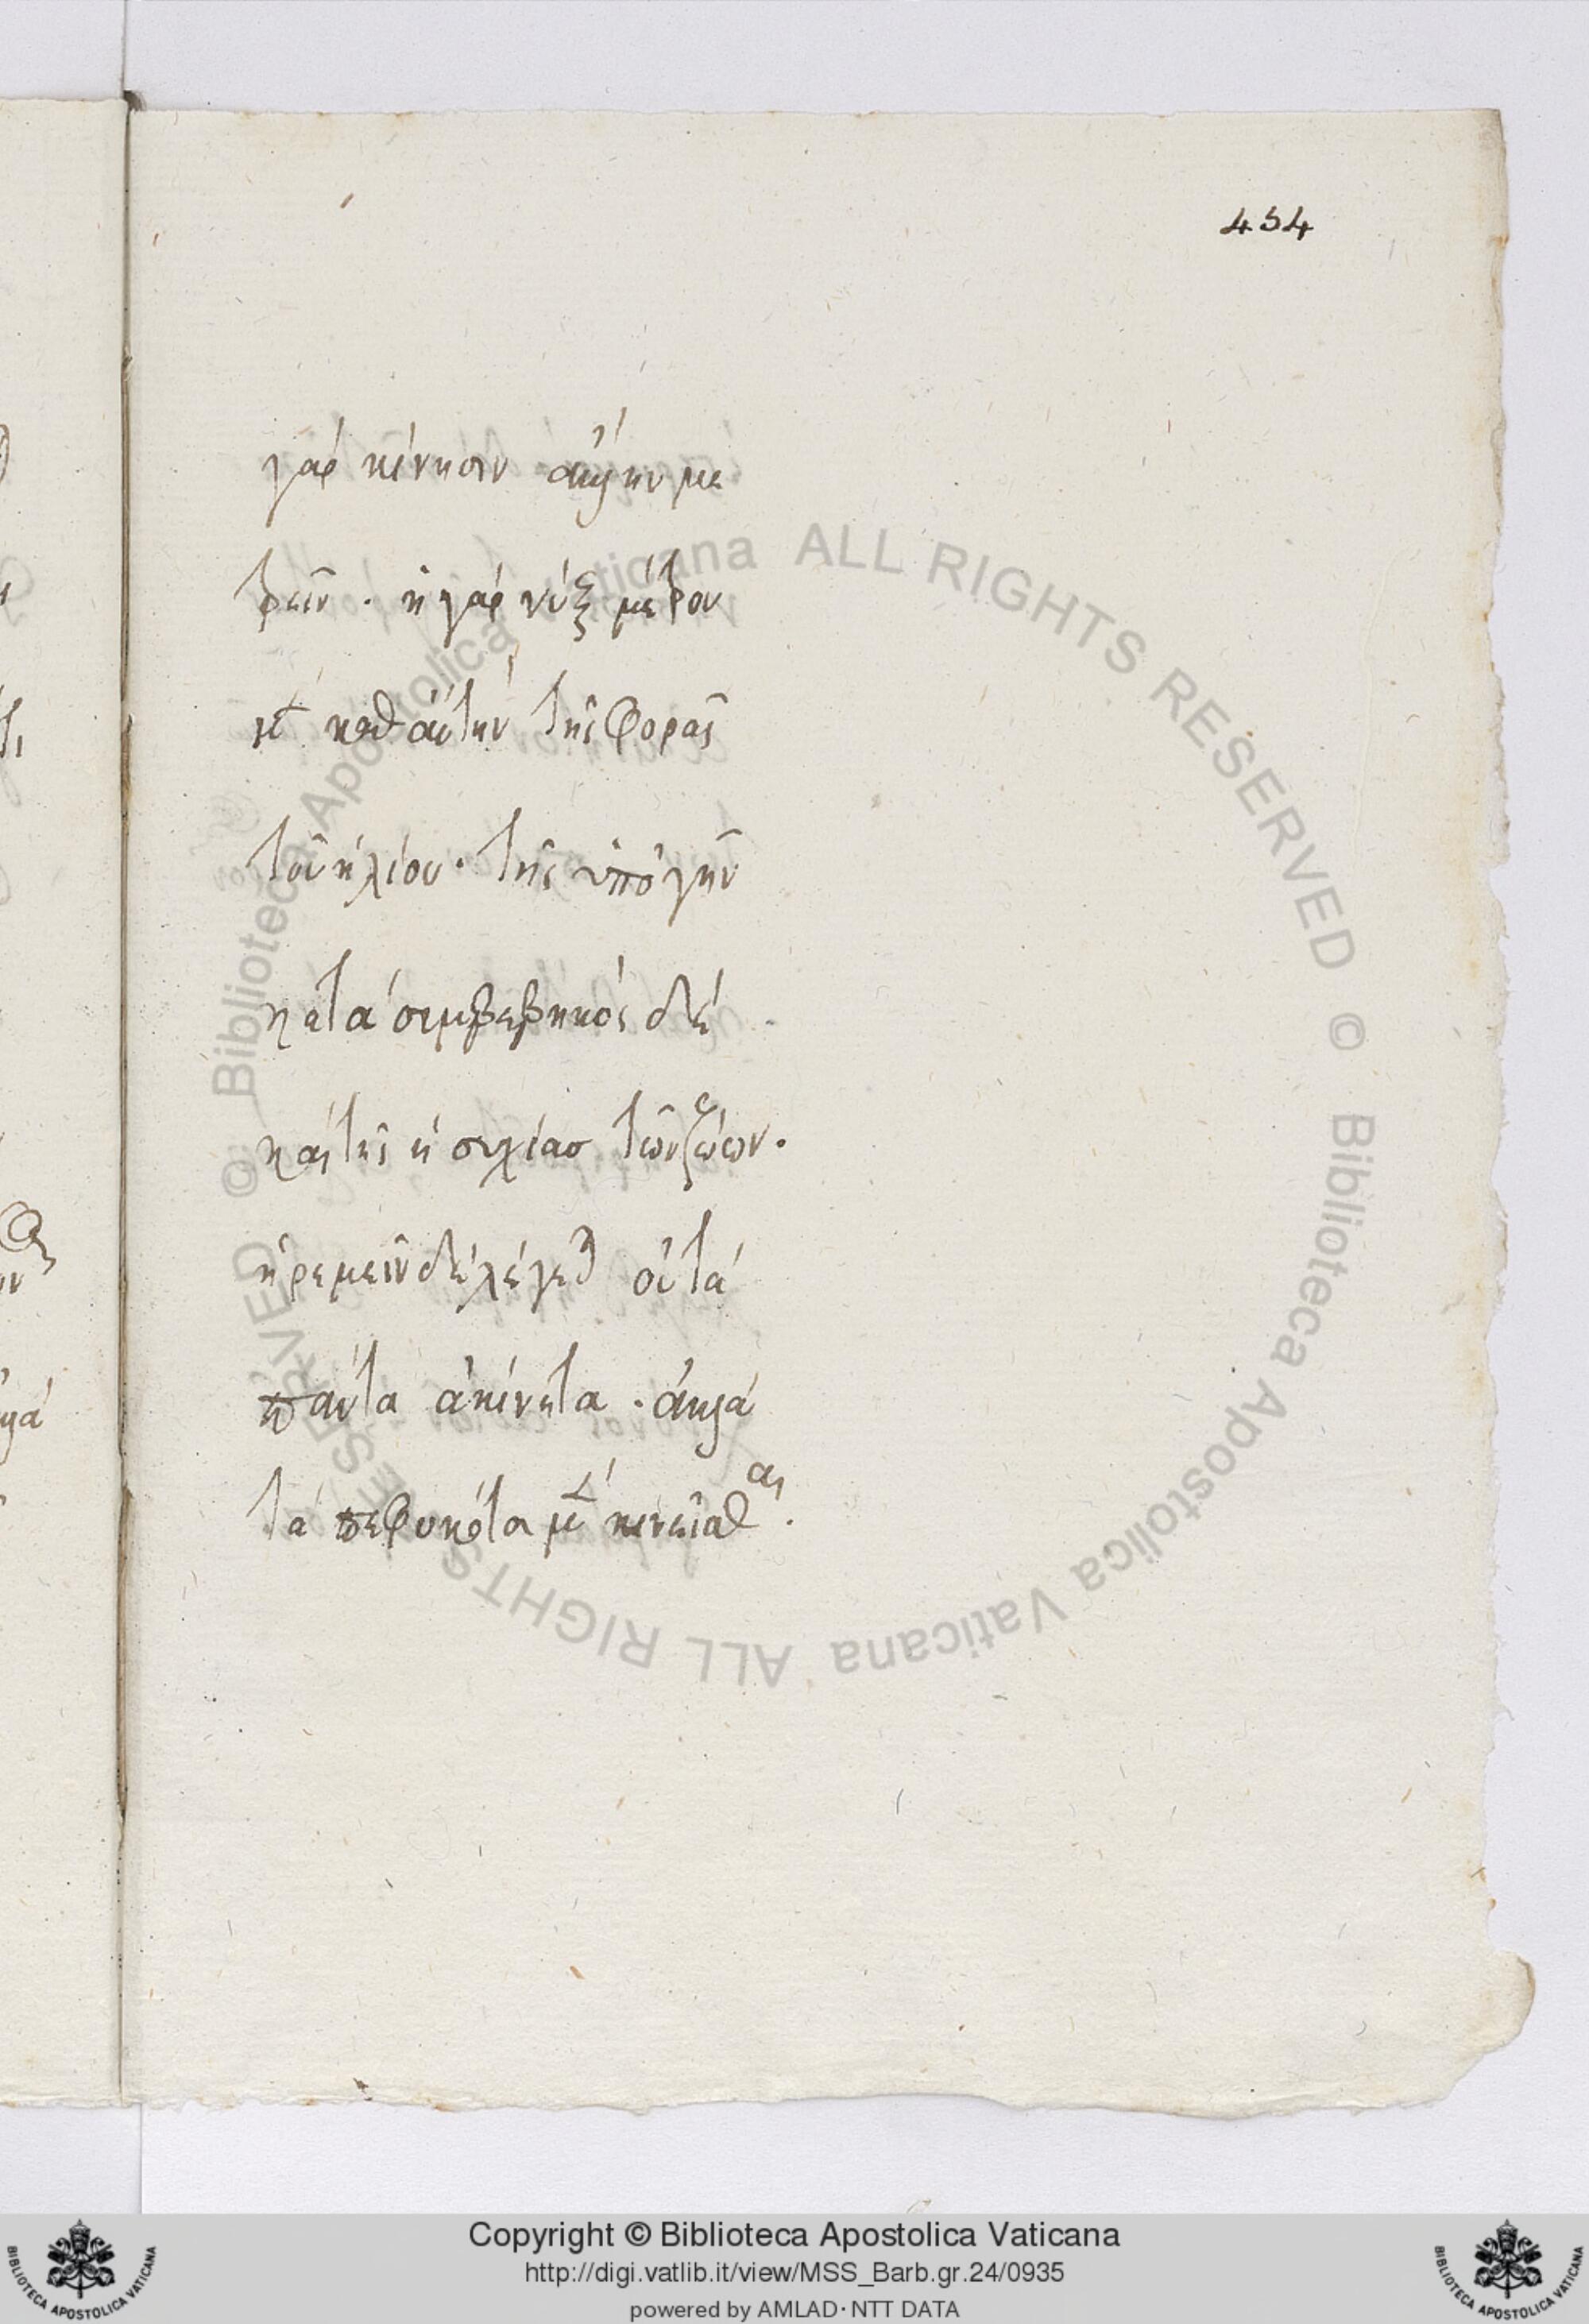 454
γὰρ κίνησιν ἄλλην με
τρεῖν . ἡ γὰρ νὺξ μέτρον
μὲν καθ αὑτὴν τῆς φορᾶς
τοῦ ἡλίου · τῆς ὑπὸ γῆν
κατὰ συμβεβηκὸς δὲ
καὶ τῆς ἡσυχίας τῶν ζώων .
ἠρεμεῖν δὲ λέγεται οὐ τὰ
πάντα ἀκίνητα . ἀλλὰ
τὰ πεφυκότα μὲν κινεῖσθαι .
© Biblioteca Apostolica Vaticana ALL RIGHTS RESERVED © Biblioteca Apostolica Vaticana ALL RIGHTS RESERVED
Copyright © Biblioteca Apostolica Vaticana
http://digi.vatlib.it/view/MSS_Barb.gr.24/0935
powered by AMLAD · NTT DATA
BIBLIOTECA APOSTOLICA VATICANA
BIBLIOTECA APOSTOLICA VATICANA